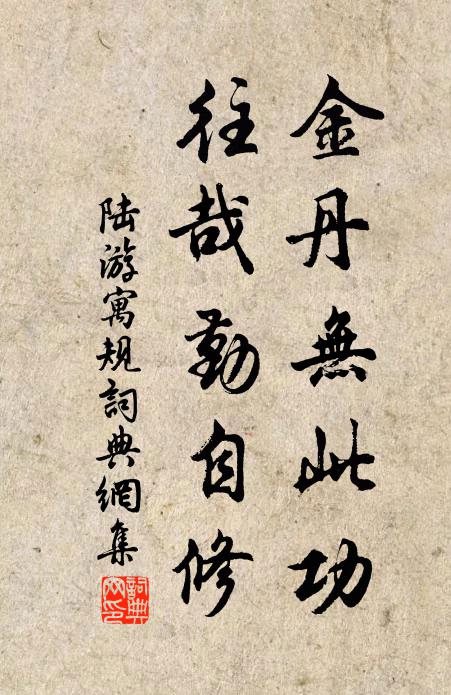 金丹無此功
往哉勤自修
陆游寓規詞典網集
詞典網印